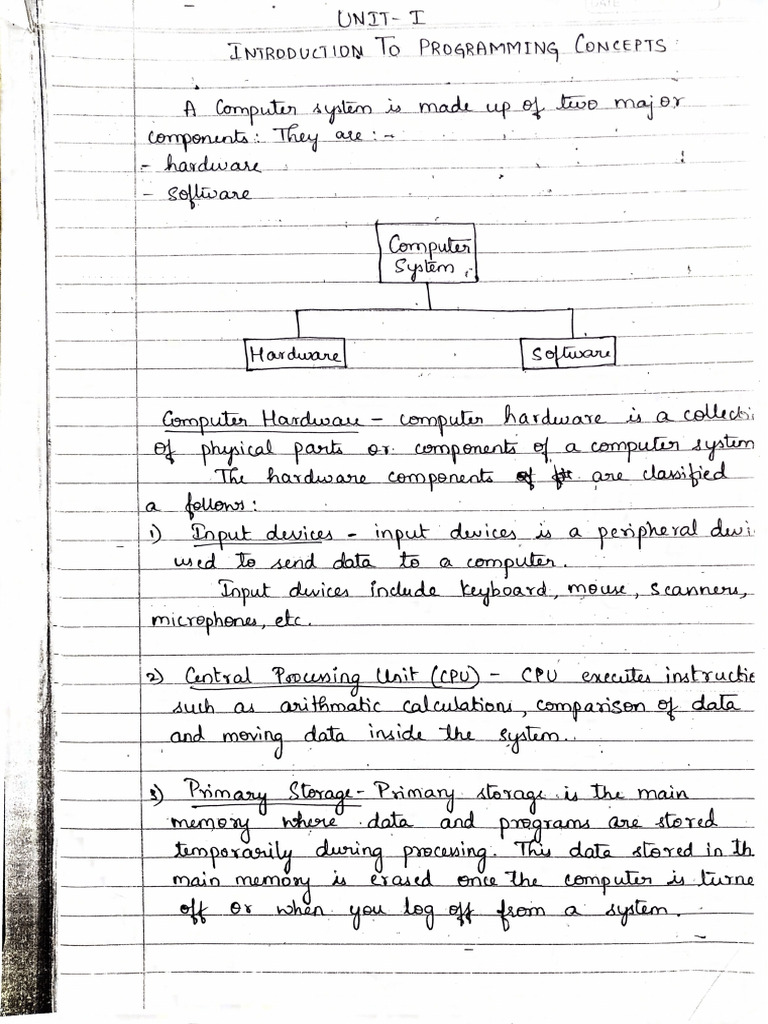 UNIT-I
INTRODUCTION TO PROGRAMMING CONCEPTS
A Computer system is made up of two major
components: They are:-
- hardware
- software
Computer
System
Hardware
Software
Computer Hardware - computer hardware is a collecti
of physical parts or components of a computer system
The hardware components are classified
a follows:
1) Input devices - input devices is a peripheral devi
used to send data to a computer.
Input devices include keyboard, mouse, scanners,
microphones, etc.
2) Central Processing Unit (CPU) - CPU executes instructi
such as arithmatic calculations, comparison of data
and moving data inside the system.
3) Primary Storage - Primary storage is the main
memory where data and programs are stored
temporarily during processing. This data stored in th
main memory is erased once the computer is turne
off or when you log off from a system.